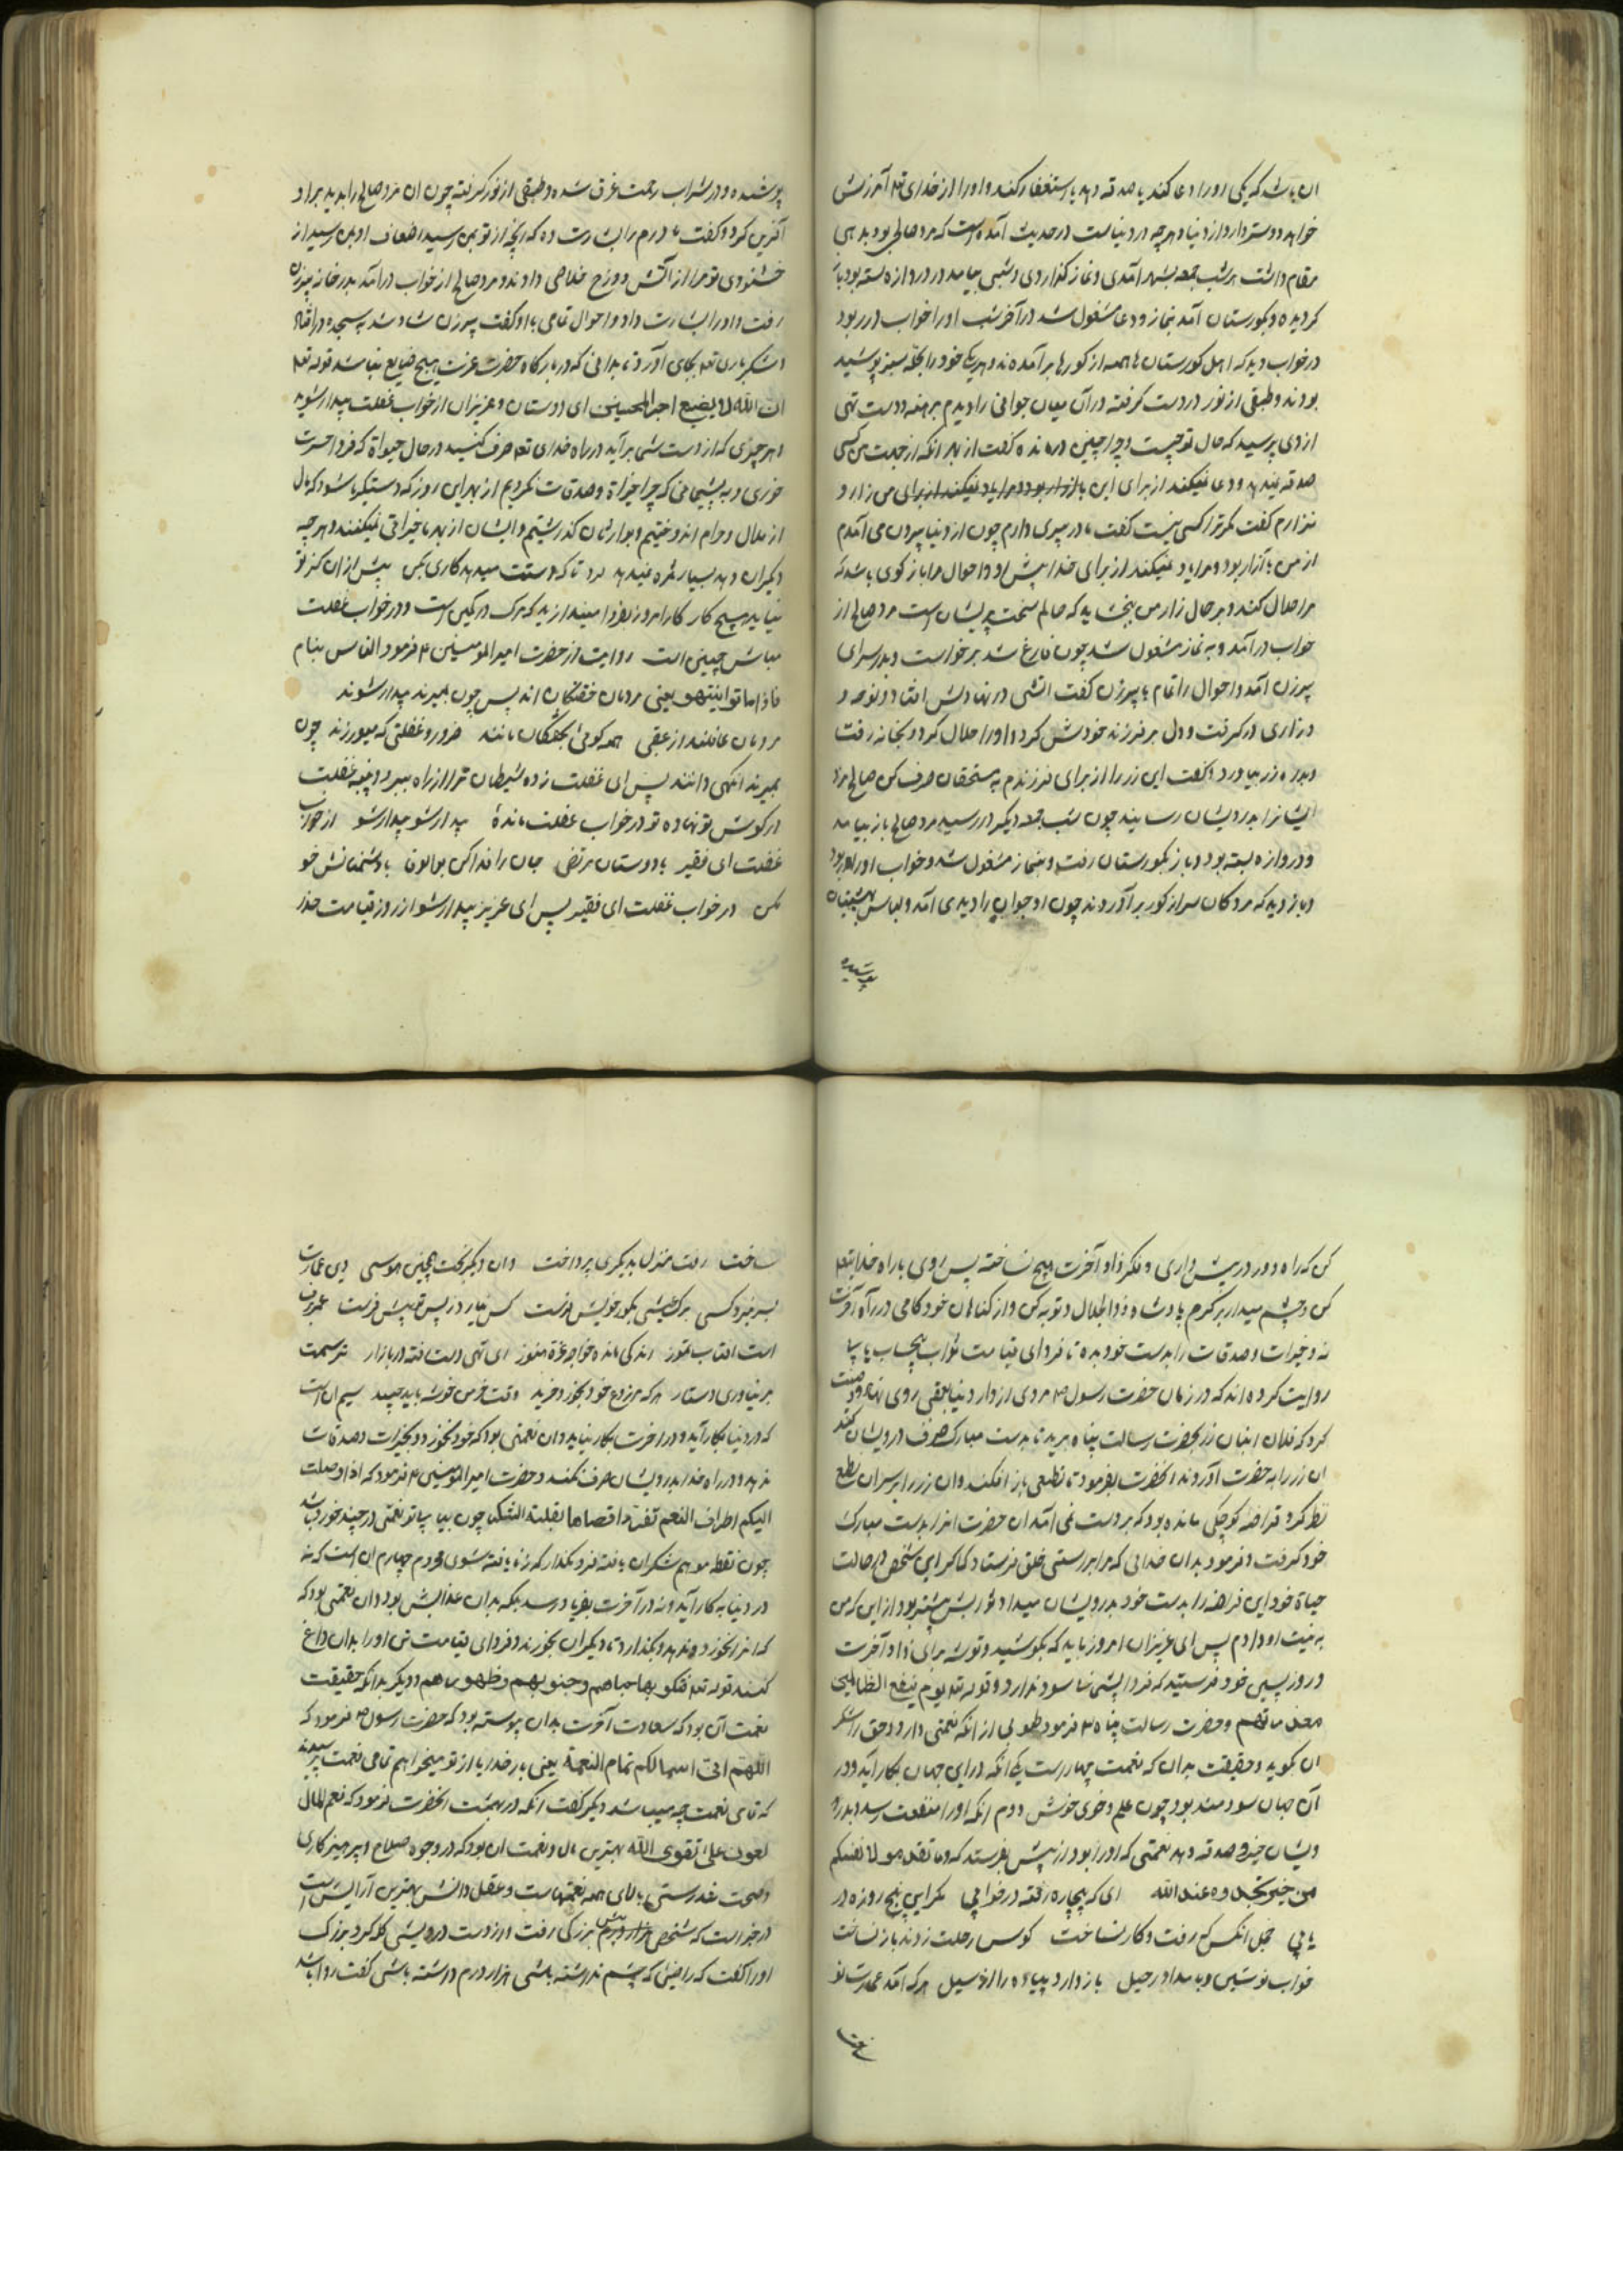 ان باشد که یکی اورا دعا کند یا صدقه دهد یا استغفار کند و اورا از خدای تع آمرزش
خواهد دوستر دارد از دنیا و هر چه در دنیاست در حدیث آمده است که مرد صالحی بود بدهی
مقام داشت هر شب جمعه بشهر آمدی و نماز گذاردی و شبی بیامد در دروازه بسته بود باز
گردیده و بگورستان آمد بنماز و دعا مشغول شد در آخر شب اورا خواب در ربود
در خواب دید که اهل گورستان ها همه از گورها برآمده اند و هر یک خود را بحله سبز پوشید
بودند و طبقی از نور در دست گرفته در آن میان جوانی را دیدم برهنه و دست تهی
از وی پرسید که حال تو چیست و چرا چنین درمانده گفت از بهر آنکه از جهت من کسی
صدقه نمیدهد و دعا نمیکند از برای این بازار بود و مرا یاد نمیکند از برای من زار و
نزارم گفت مگر ترا کسی نیست گفت مادر پیری دارم چون از دنیا بیرون می آمدم
از من بآزار بود و مرا یاد نمیکند از برای خدا پیش او و احوال مرا باز گوی باشد که
مرا حلال کند و بر حال زار من ببخشاید که حالم سخت پریشان است مرد صالح از
خواب درآمد و به نماز مشغول شد چون فارغ شد برخواست و بدر سرای
پیرزن آمد و احوال را تمام با پیرزن گفت آتشی در نهادش افتاد و نوحه و
و زاری درگرفت و دل بر فرزند خود خوش کرد و اورا حلال کرد و بخانه رفت
و بدره زر بیاورد و گفت این زر را از برای فرزندم به مستحقان صرف کن صالح مرد
ایشانرا بدرویشان رسانید چون شب جمعه دیگر در رسید مرد صالح باز بیامد
و دروازه بسته بود و باز بگورستان رفت و بنماز مشغول شد و خواب اورا در ربود
و باز دید که مردگان سر از گور برآوردند چون او جوان را دیدی آمد و لباس بهشتیان
پوشیده
پوشیده و در شراب رحمت غرق شده و طبقی از نور گرفته چون ان مرد صالح را بدید بر او
آفرین کرد و گفت مادرم را بشارت ده که آنچه از تو بمن رسید اضعاف او بمن رسید از
خشنودی تو مرا از آتش دوزخ خلاصی دادند و مرد صالح از خواب درآمد بدر خانه پیرزن
رفت و اورا بشارت داد و احوال تمامی با او گفت پیرزن شاد شد به سجده در افتاد
و شکر باری تع بجای آورد تا بدانی که در بارگاه حضرت عزت هیچ ضایع نباشد قوله تع
ان الله لا یضیع اجر المحسنین ای دوستان و عزیزان از خواب غفلت بیدار شوید
و هر چیزی که از دست شما برآید در راه خدای تع صرف کنید در حال حیوة که فردا حسرت
خوری و به پشیمانی که چرا خیراة و صدقات نکردیم از بهر این روز که دستگیر ما شود که مال
از حلال و حرام اندوختیم و بوارثان گذاشتیم و ایشان از بهر ما خیراتی نمیکنند و هر چه
دیگران دهد بسیار ثمره نمیدهد مرد تا که دستت میدهد کاری بکن پیش از ان کز تو
نیاید هیچ کار کار امروز بفردا میندازید که مرگ در کمین است و در خواب غفلت
مباش چنین است روایت از حضرت امیر المومنین ۴ فرمود الناس نیام
فاذا ماتوا انتبهو یعنی مردمان خفتگان اند پس چون بمیرند بیدار شوند
مردمان غافلند از عقبی همه گوئی بخفتگان مانند ضرر و غفلتی که میورزند چون
بمیرند آنگهی دانند پس ای غفلت زده شیطان ترا از راه ببرد و پنبه غفلت
در گوش تو نهاده تو در خواب غفلت مانده بیدار شو بیدار شو از خواب
غفلت ای فقیر با دوستان مرتضی جان را فدا کن بوالوفا با دشمنانش خو
مکن در خواب غفلت ای فقیر پس ای عزیز بیدار شو از روز قیامت حذر
کن که راه دور در پیش داری و فکر زاد آخرت هیچ نساخته پس روی باراه خدایتع
کن و چشم میدار بر کرم پادشاه ذوالجلال و توبه کن و از گناهان خود گامی در راه آخرت
نه و خیرات و صدقات را بدست خود بده تا فردای قیامت ثواب بیحساب بیابی
روایت کرده اند که در زمان حضرت رسول ص مردی از دار دنیا بعقبی روی نهاد و وصیت
کرد که فلان انبان زر بحضرت رسالت پناه برید تا بدست مبارک صرف درویشان کند
ان زر را به حضرت آوردند آنحضرت بفرمود تا نطعی باز افکند و ان زر را بر سر ان نطع
نطر کرد قراضه کوچکی مانده بود که بر دست نمی آمد ان حضرت انرا بدست مبارک
خود گرفت و فرمود بدان خدائی که مرا براستی بخلق فرستاد که اگر این شخص در حالت
حیاة خود این قراضه را بدست خود بدرویشان میداد ثوابش بیشتر بود از این که من
به نیت او دادم پس ای عزیزان امروز باید که بکوشید و توشه برای زاد آخرت
و روز پسین خود فرستید که فردا پشیمانی سود ندارد و قوله تع یوم لا ینفع الظالمین
معذرتهم و حضرت رسالت پناه ۴ فرمود طوبی از آنکه نعمتی دارد و حق را شکر
ان گوید و حقیقت بدان که نعمت چهار است یکی آنکه در این جهان بکار آید و در
آن جهان سودمند بود چون علم و خوی خوش دوم آنکه اورا منفعت رسد و بدرو
ویشان خیر و صدقه دهد نعمتی که اورا بود از پیش بفرستد که وما تقدموا لانفسکم
من خیر تجدوه عندالله ای که پنجاه رفته در خوابی مگر این پنج روزه در
یابی خجل آنکس که رفت و کار نساخت کوس رحلت زدند و بار نساخت
خواب نوشین و بامداد رحیل باز دارد پیاده را از سبیل هر که آمد عمارت نو
ساخت
ساخت رفت منزل بدیگری پرداخت وان دیگر پخت همچنین هوسی وین عمارت
بسر نبرد کسی برگ عیشی بگور خویش فرست کس نیارد ز پس تو پیش فرست عمر برف
است افتاب تموز اندکی مانده خواجه غره هنوز ای تهی دست رفته در بازار ترسمت
بر نیاوری دستار هر که مزروع خود بخورد خوید وقت خرمنش خوشه باید چید سیم ان است
که در دنیا بکار آید و در اخرت بکار نیاید و ان نعمتی بود که خود بخورد و بخیرات و صدقات
ندهد و در راه خدا بدرویشان صرف نکند و حضرت امیر المومنین ۴ فرمود که اذا وصلت
الیکم اطراف النعم فلا تنفروا اقصاها بقلت الشکر چون بیابی تو نعمتی در چند خورد باشد
چون نقطه موهوم شکران یافته فرو مگذار که ز نایافته شوی محروم چهارم ان است که نه
در دنیا به کار آید و نه در آخرت بفریاد رسد بلکه بدان عذابش بود و ان نعمتی بود که
که انرا نخورد و ندهد و بگذارد تا دیگران بخورند و فردای قیامت تن اورا بدان داغ
کنند قوله تع فتکوی بها جباههم و جنوبهم و ظهورهم و دیگر بدانکه حقیقت
نعمت آن بود که سعادت آخرت بدان پیوسته بود که حضرت رسول ص فرمود که
اللهم انی اسالکم تمام النعمة یعنی بار خدایا از تو میخواهم تمامی نعمت پرسیدند
که تمامی نعمت چه میباشد دیگر گفت آنکه در بهشت آنحضرت فرمود که نعم المال
لعون علی تقوی الله بهترین مال و نعمت ان بود که در وجوه صلاح و پرهیزکاری
و صحت تندرستی بالای همه نعمتهاست و عقل و دانش بهترین آرایش است
در خبر است که شخصی پیش بزرگی رفت و از دست درویشی گله کرد بزرگ
اورا گفت که راضی که چشم نداشته باشی هزار درم داشته باشی گفت روا باشد